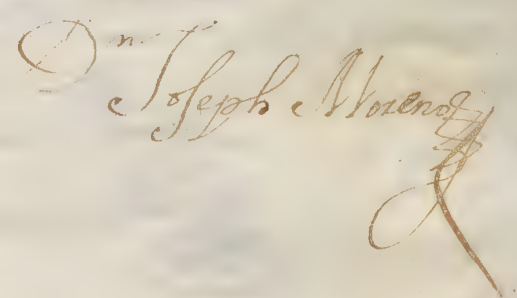 Dn. Joseph Moreno